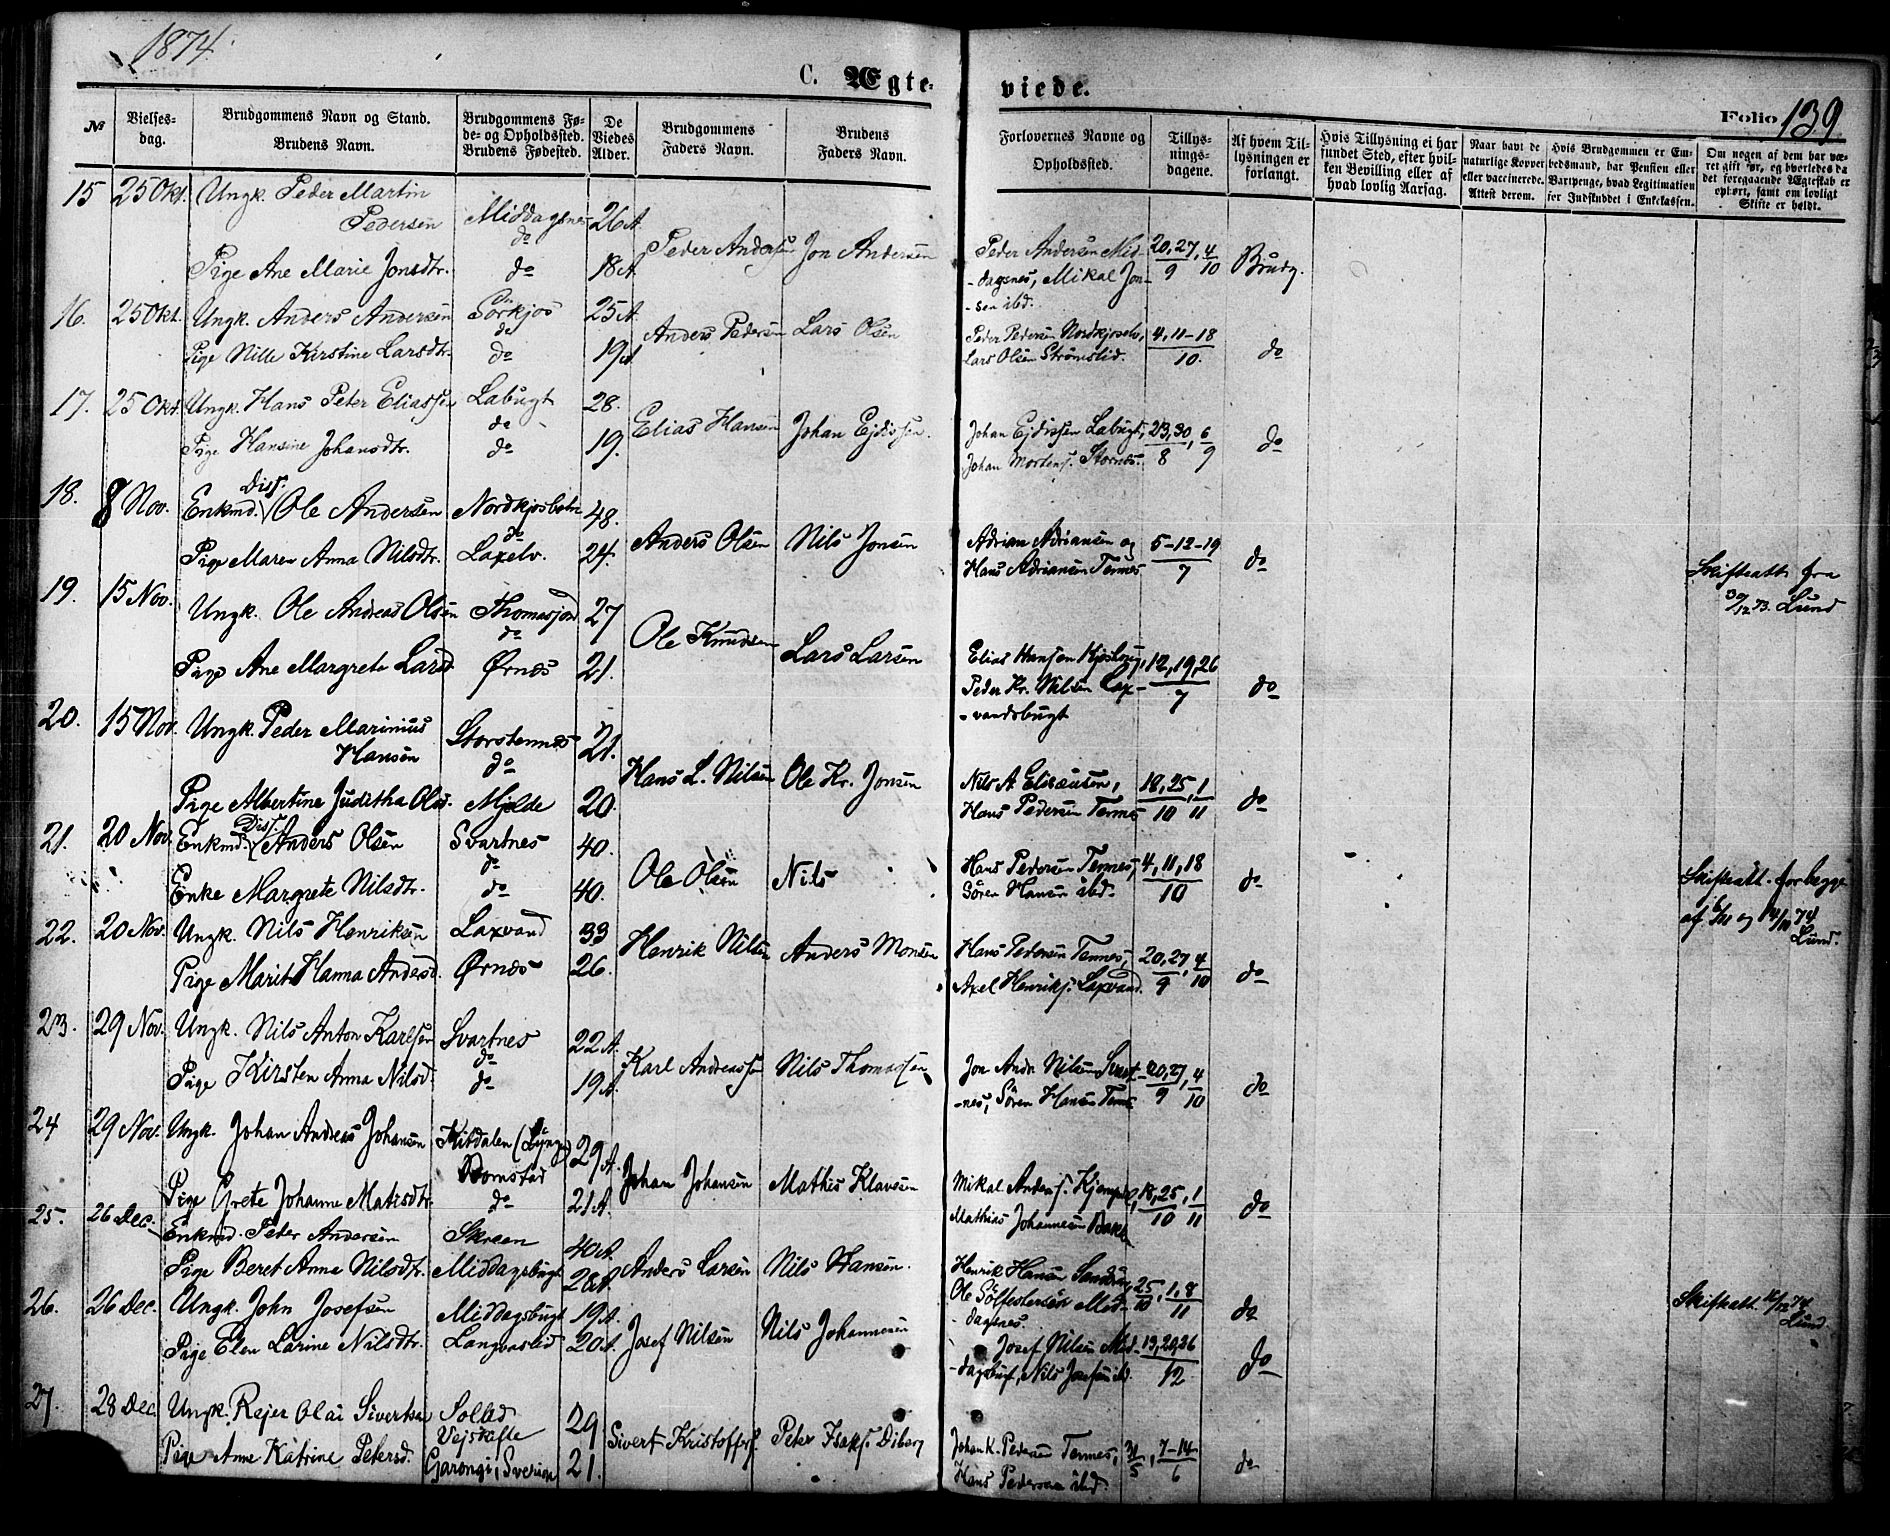 1874.
C. Ægteviede.
Folio 139
№
Vielsesdag.
Brudgommens Navn og Stand.
Brudens Navn.
Brudgommens Føde- og Opholdssted.
Brudens Fødested.
De Viedes Alder.
Brudgommens Faders Navn.
Brudens Faders Navn.
Forlovernes Navne og Opholdssted.
Tillysningsdagene.
Af hvem Tillysningen er forlangt.
Hvis Tillysning ei har fundet Sted, efter hvilken Bevilling eller af hvad lovlig Aarsag.
Naar havt de naturlige Kopper eller vaccinerede. Attest derom.
Hvis Brudgommen er Embedsmand, har Pension eller Vartpenge, hvad Legitimation for Indskuddet i Enkekassen.
Om nogen af dem har været gift før, og hvorledes da det foregaaende Ægteskab er ophørt, samt om lovligt Skifte er holdt.
15 25 Okt. Ungk. Peder Martin Pedersen Middagsnes do 26 A. Peder Andersen Jon Andersen
Pige Ane Marie Jonsdtr. do 18 A.
Peder Andersen Mid-
-dagsnes, Mikal Jon-
-sen ibd. 20, 27/9, 4/10 Brudg.
16. 25 Okt. Ungk. Anders Andersen Sørkjos do 25 A. Anders Pedersen Lars Olsen
Pige Nille Kirstine Larsdtr. do 19 A.
Peder Pedersen Nordkjoselv,
Lars Olsen Strømslid. 4, 11-18/10. do
17. 25 Okt. Ungk. Hans Peter Eliassen Labugt do 28. Elias Hansen Johan Ejdissen.
Pige Hansine Johansdtr. do 19.
Johan Ejdissen Labugt,
Johan Mortens. Stornes. 23, 30/8, 6/9 do
18. 8 Nov. Enkmd. Diss. Ole Andersen Nordkjosbotn do 48. Anders Olsen Nils Jonsen
Pige Maren Anna Nilsdtr. Laxelv. 24.
Adrian Adriansen og
Hans Adriansen Tennes 5-12-19/7 do
Skifteatt. fra
30/12 73. Lund
19. 15 Nov. Ungk. Ole Andreas Olsen Thomasjord do 27 Ole Knudsen Lars Larsen
Pige Ane Margrete Larsd. Ørnes 21.
Elias Hansen
Peder Kr. Nilsen Lax-
-vandsbugt 12, 19, 26/7 do
20. 15 Nov. Ungk. Peder Marinius Hansen Storstennes do 21. Hans L. Nilsen Ole Kr. Jonsen
Pige Albertine Juditha Olsd. Mjelde 20.
Nils A. Elisæusen,
Hans Pedersen Tennes 18, 25/10, 1/11 do
21. 20 Nov. Enkmd. Diss. Anders Olsen Svartnes do 40. Ole Olsen Nils
Enke Margrete Nilsdtr. do 40.
Hans Pedersen Tennes,
Søren Hansen ibd. 4, 11, 18/10 do
Skifteatt. for begge
af og 14/11 74
Lund.
22. 20 Nov. Ungk. Nils Henriksen Laxvand 33 Henrik Nilsen Anders Monsen
Pige Marit Hanna Andersd. Ørnes 26.
Hans Pedersen Tennes,
Axel Henriks. Laxvand. 20, 27/9, 4/10 do
23. 29 Nov. Ungk. Nils Anton Karlsen Svartnes do 22 A. Karl Andreassen Nils Thomassen
Pige Kirsten Anna Nilsd. do 19 A.
Jon Andr. Nilsen Svart-
-nes, Søren Hansen Tennes 20, 27/9, 4/10 do
24 29 Nov. Ungk. Johan Andreas Johansen Kitdalen (Lyngen) Bomstad 29 A. Johan Johansen Mathis Klavesen
Pige Grete Johanne Matisdtr. do 21 A.
Mikal Anders.
Mathias Johannesen 18, 25/10, 1/11 do
25. 26 Dec. Enkmd. Peder Andersen Skreen 40 A. Anders Larsen Nils Hansen.
Pige Beret Anna Nilsdtr. Middagsbugt 28 A.
Henrik Hansen
Ole Sølfestersen Mid-
-dagsnes. 25/10, 1, 8/11 do
Skifteatt. 74
Lund.
26. 26 Dec. Ungk. John Josefsen Middagsbugt 19 A. Josef Nilsen Nils Johannesen
Pige Elen Larine Nilsdtr. Langvaslid 20 A.
Josef Nilsen Mid-
-dagsbugt, Nils Josefsen ibd. 13, 20, 26/12 do
27. 28 Dec. Ungk. Rejer Olai Sivertsen Solled 29 Sivert Kristoffers. Peter Isaks. Diberg
Pige Anne Katrine Petersd. Garongi, Sverige 21.
Johan K. Pedersen Tennes,
Hans Pedersen ibd. 31/5, 7-14/6 do